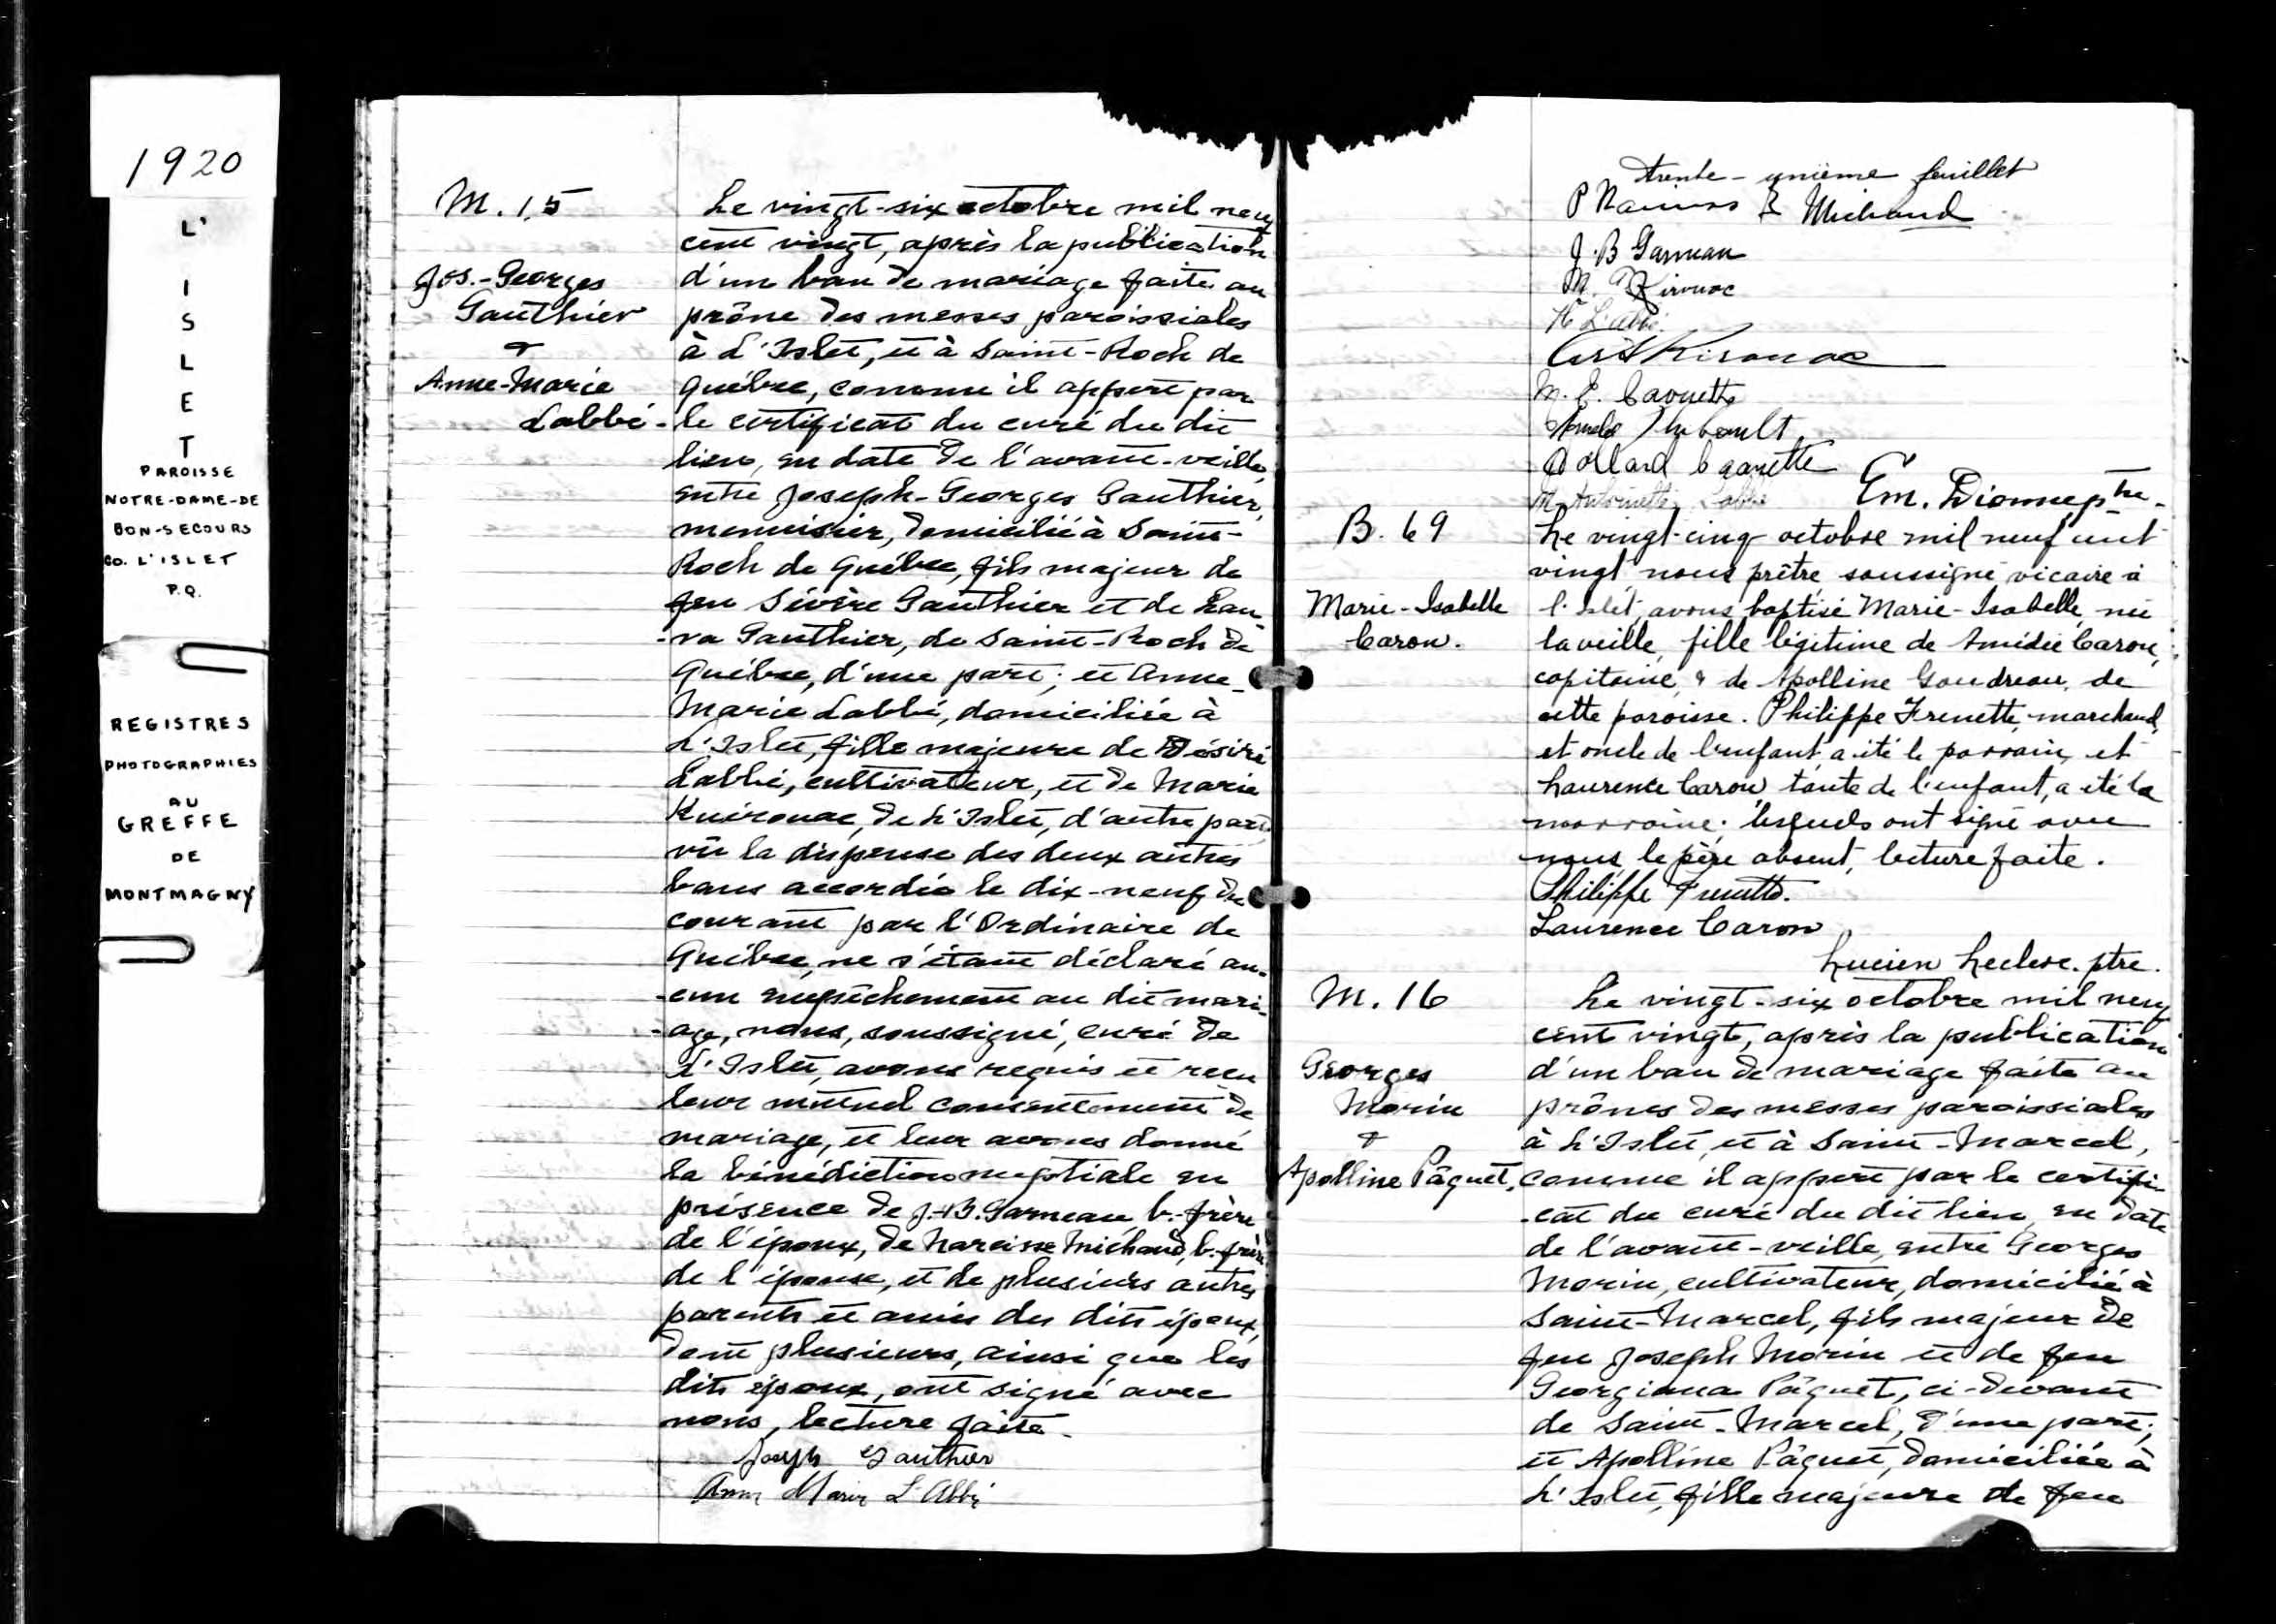 1920
L'
I
S
L
E
T
PAROISSE
NOTRE-DAME-DE
BON-SECOURS
CO. L'ISLET
P.Q.
REGISTRES
PHOTOGRAPHIES
AU
GREFFE
DE
MONTMAGNY
M. 15
Jos.-Georges
Gauthier
&
Anne-Marie
Labbé-
Le vingt-six octobre mil neuf
cent vingt, après la publication
d'un ban de mariage faite au
prône des messes paroissiales
à L'Islet, et à Saint-Roch de
Québec, comme il appert par
le certificat du curé du dit
lieu, en date de l'avant-veille,
entre Joseph-Georges Gauthier,
menuisier, domicilié à Saint-
Roch de Québec, fils majeur de
feu Sévère Gauthier et de Lau-
-ra Gauthier, de Saint-Roch de
Québec, d'une part; et Anne-
Marie Labbé, domiciliée à
L'Islet, fille majeure de Désiré
Labbé, cultivateur, et de Marie
Kuirouac, de L'Islet, d'autre part,
vû la dispense des deux autres
bans accordée le dix-neuf du
courant par l'Ordinaire de
Québec, ne s'étant déclaré au-
-cun empêchement au dit mari-
-age, nous, soussigné, curé de
L'Islet, avons requis et reçu
leur mutuel consentement de
mariage, et leur avons donné
la bénédiction nuptiale en
présence de J.-B. Garneau b.-frère
de l'époux, de Narcisse Michaud, b.-frère
de l'épouse, et de plusieurs autres
parents et amis des dits époux,
dont plusieurs, ainsi que les
dits époux, ont signé avec
nous, lecture faite.
Joseph Gauthier
Anne Marie L'Abbé
trente-unième feuillet
Michaud
J.B Garneau
M. Kirouac
L'abbé.
Kirouac
M. E. Caouette
Thibault
Dollard Caouette
M Antoinette Labbé
Em. Dionne ptre-
B. 69
Marie-Isabelle
Caron.
Le vingt-cinq octobre mil neuf cent
vingt nous prêtre soussigné vicaire à
l'Islet, avons baptisé Marie-Isabelle, née
la veille, fille légitime de Amédée Caron,
capitaine, & de Apolline Gaudreau, de
cette paroisse. Philippe Frenette, marchand,
et oncle de l'enfant, a été le parrain, et
Laurence Caron, tante de l'enfant, a été la
marraine; lesquels ont signé avec
nous, le père absent, lecture faite.
Philippe Frenette.
Laurence Caron
Lucien Leclerc. ptre.
M. 16
Georges
Morin
&
Apolline Pâquet,
Le vingt-six octobre mil neuf
cent vingt, après la publication
d'un ban de mariage faite au
prônes des messes paroissiales
à L'Islet, et à Saint-Marcel,
comme il appert par le certifi-
-cat du curé du dit lieu, en date
de l'avant-veille, entre Georges
Morin, cultivateur, domicilié à
Saint-Marcel, fils majeur de
feu Joseph Morin et de feu
Georgiana Pâquet, ci-devant
de Saint-Marcel, d'une part;
et Apolline Pâquet, domiciliée à
L'Islet, fille majeure de feu